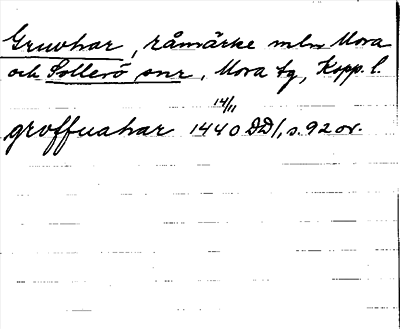 Gruvhar, råmärke mln Mora
och Sollerö snr, Mora tg, Kopp. l.
14/11
groffuahar 1440 DD1, s. 92 or.